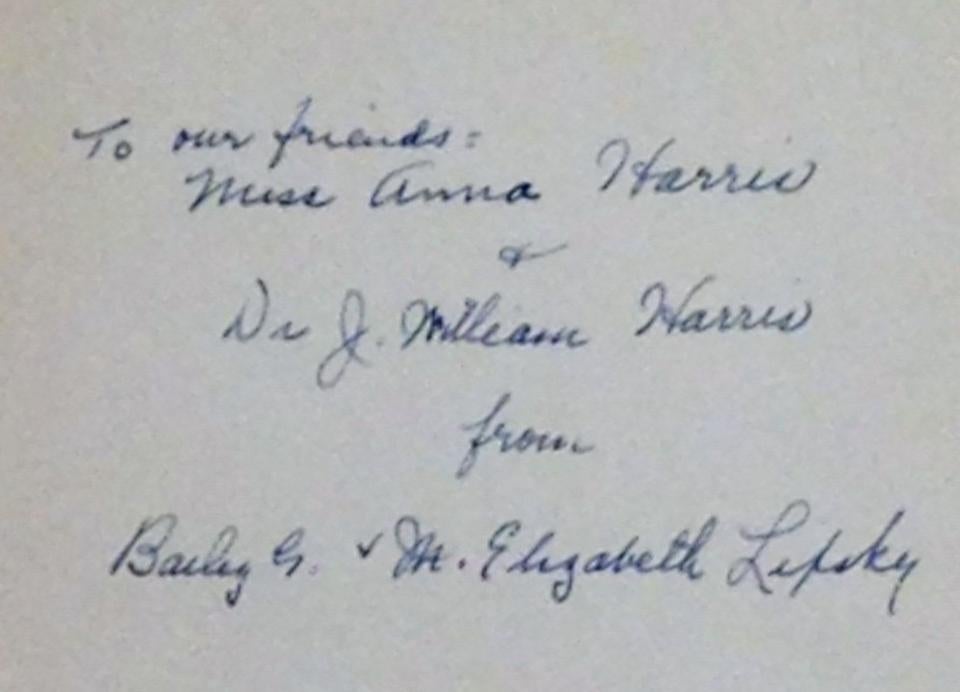 To our friends:
Miss Anna Harris
&
Dr J. William Harris
from
Bailey G. & M. Elizabeth Lipsky